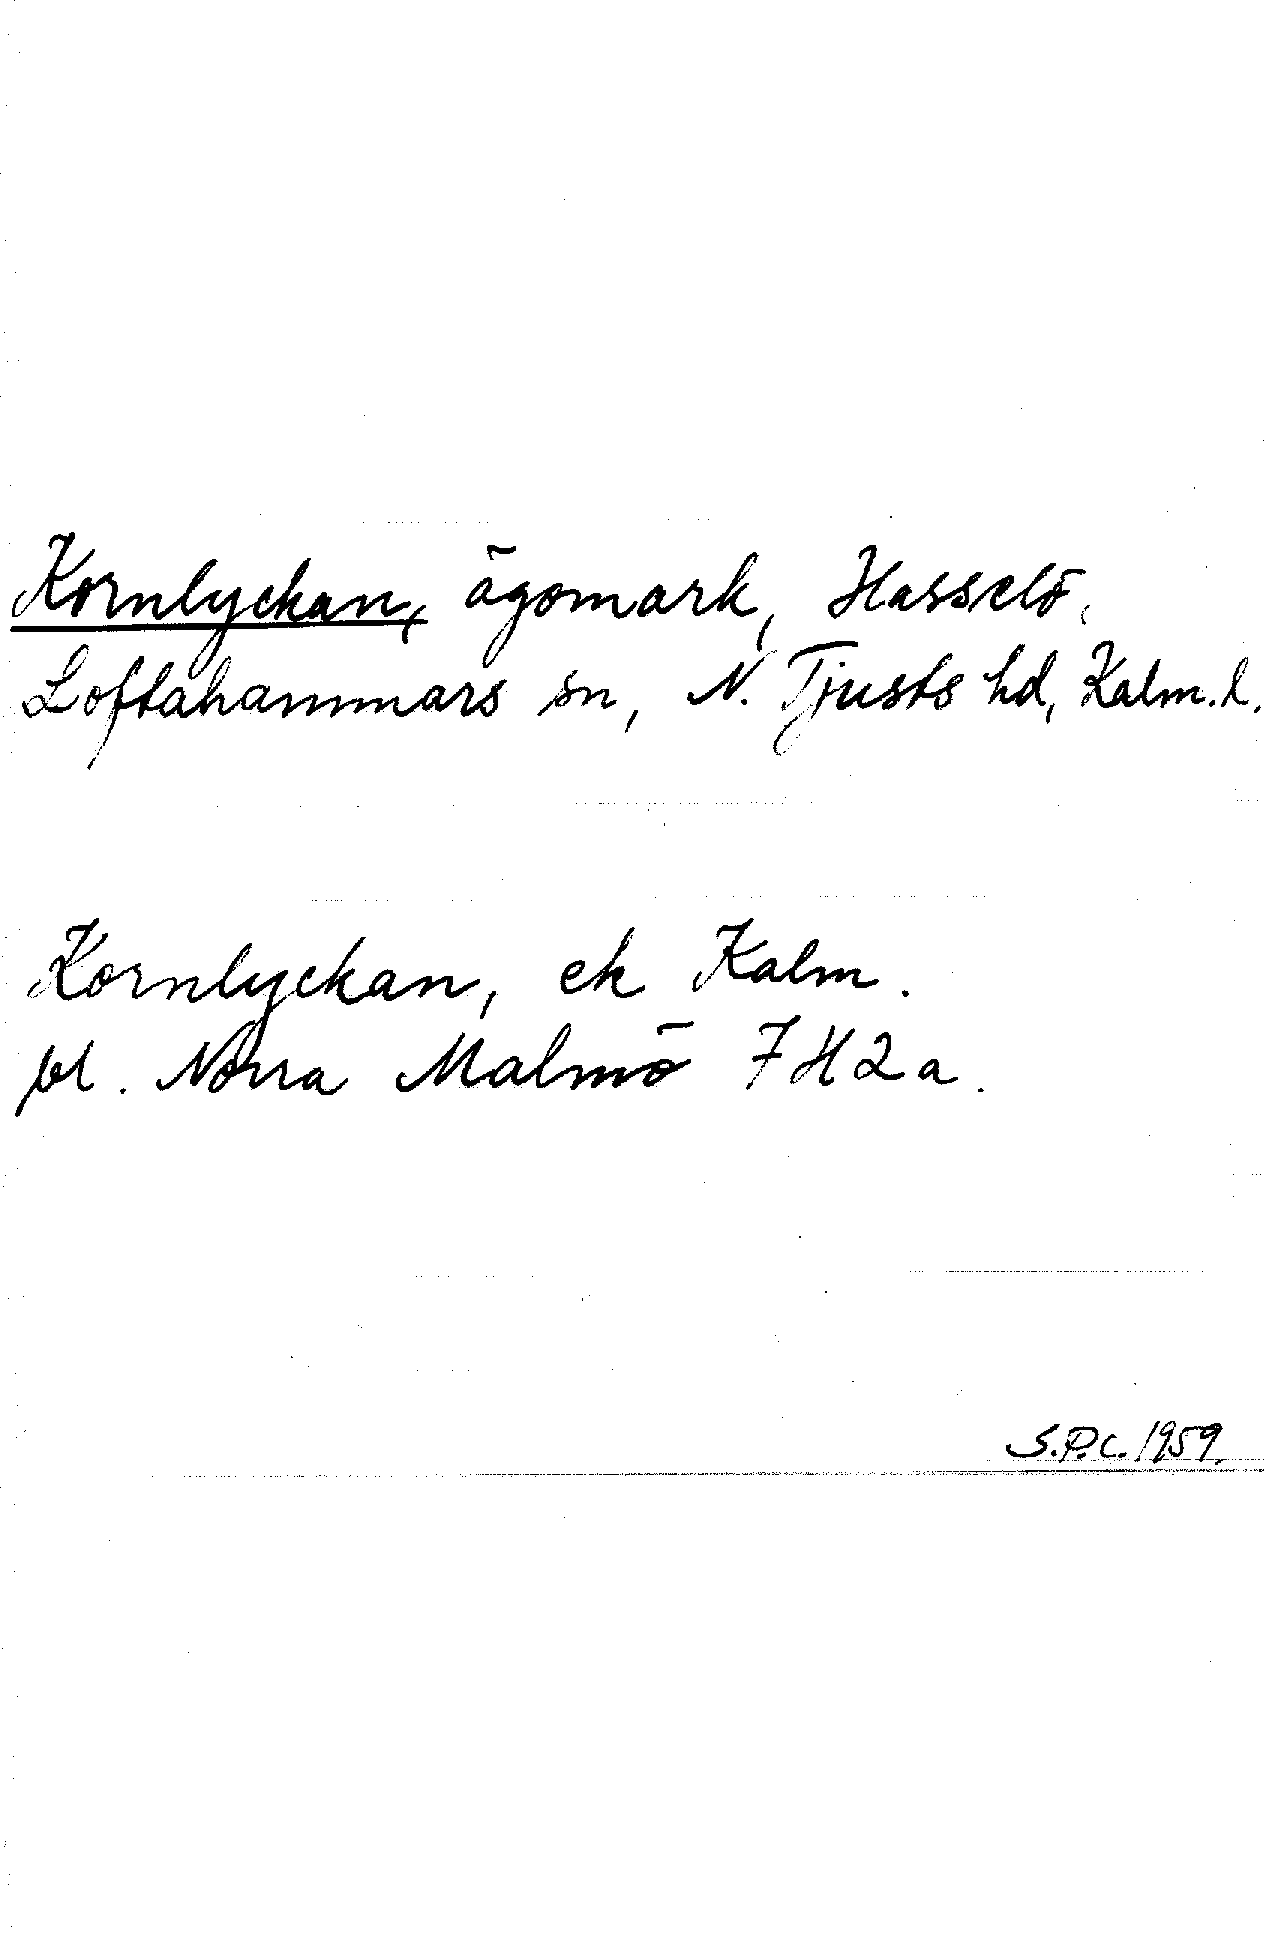 Kornlyckan, ägomark, Hasselö,
Loftahammars sn, N. Tjusts hd, Kalm.l.
Kornlyckan, ek Kalm.
bl. Norra Malmö 7H2a.
S.P.C. 1959.